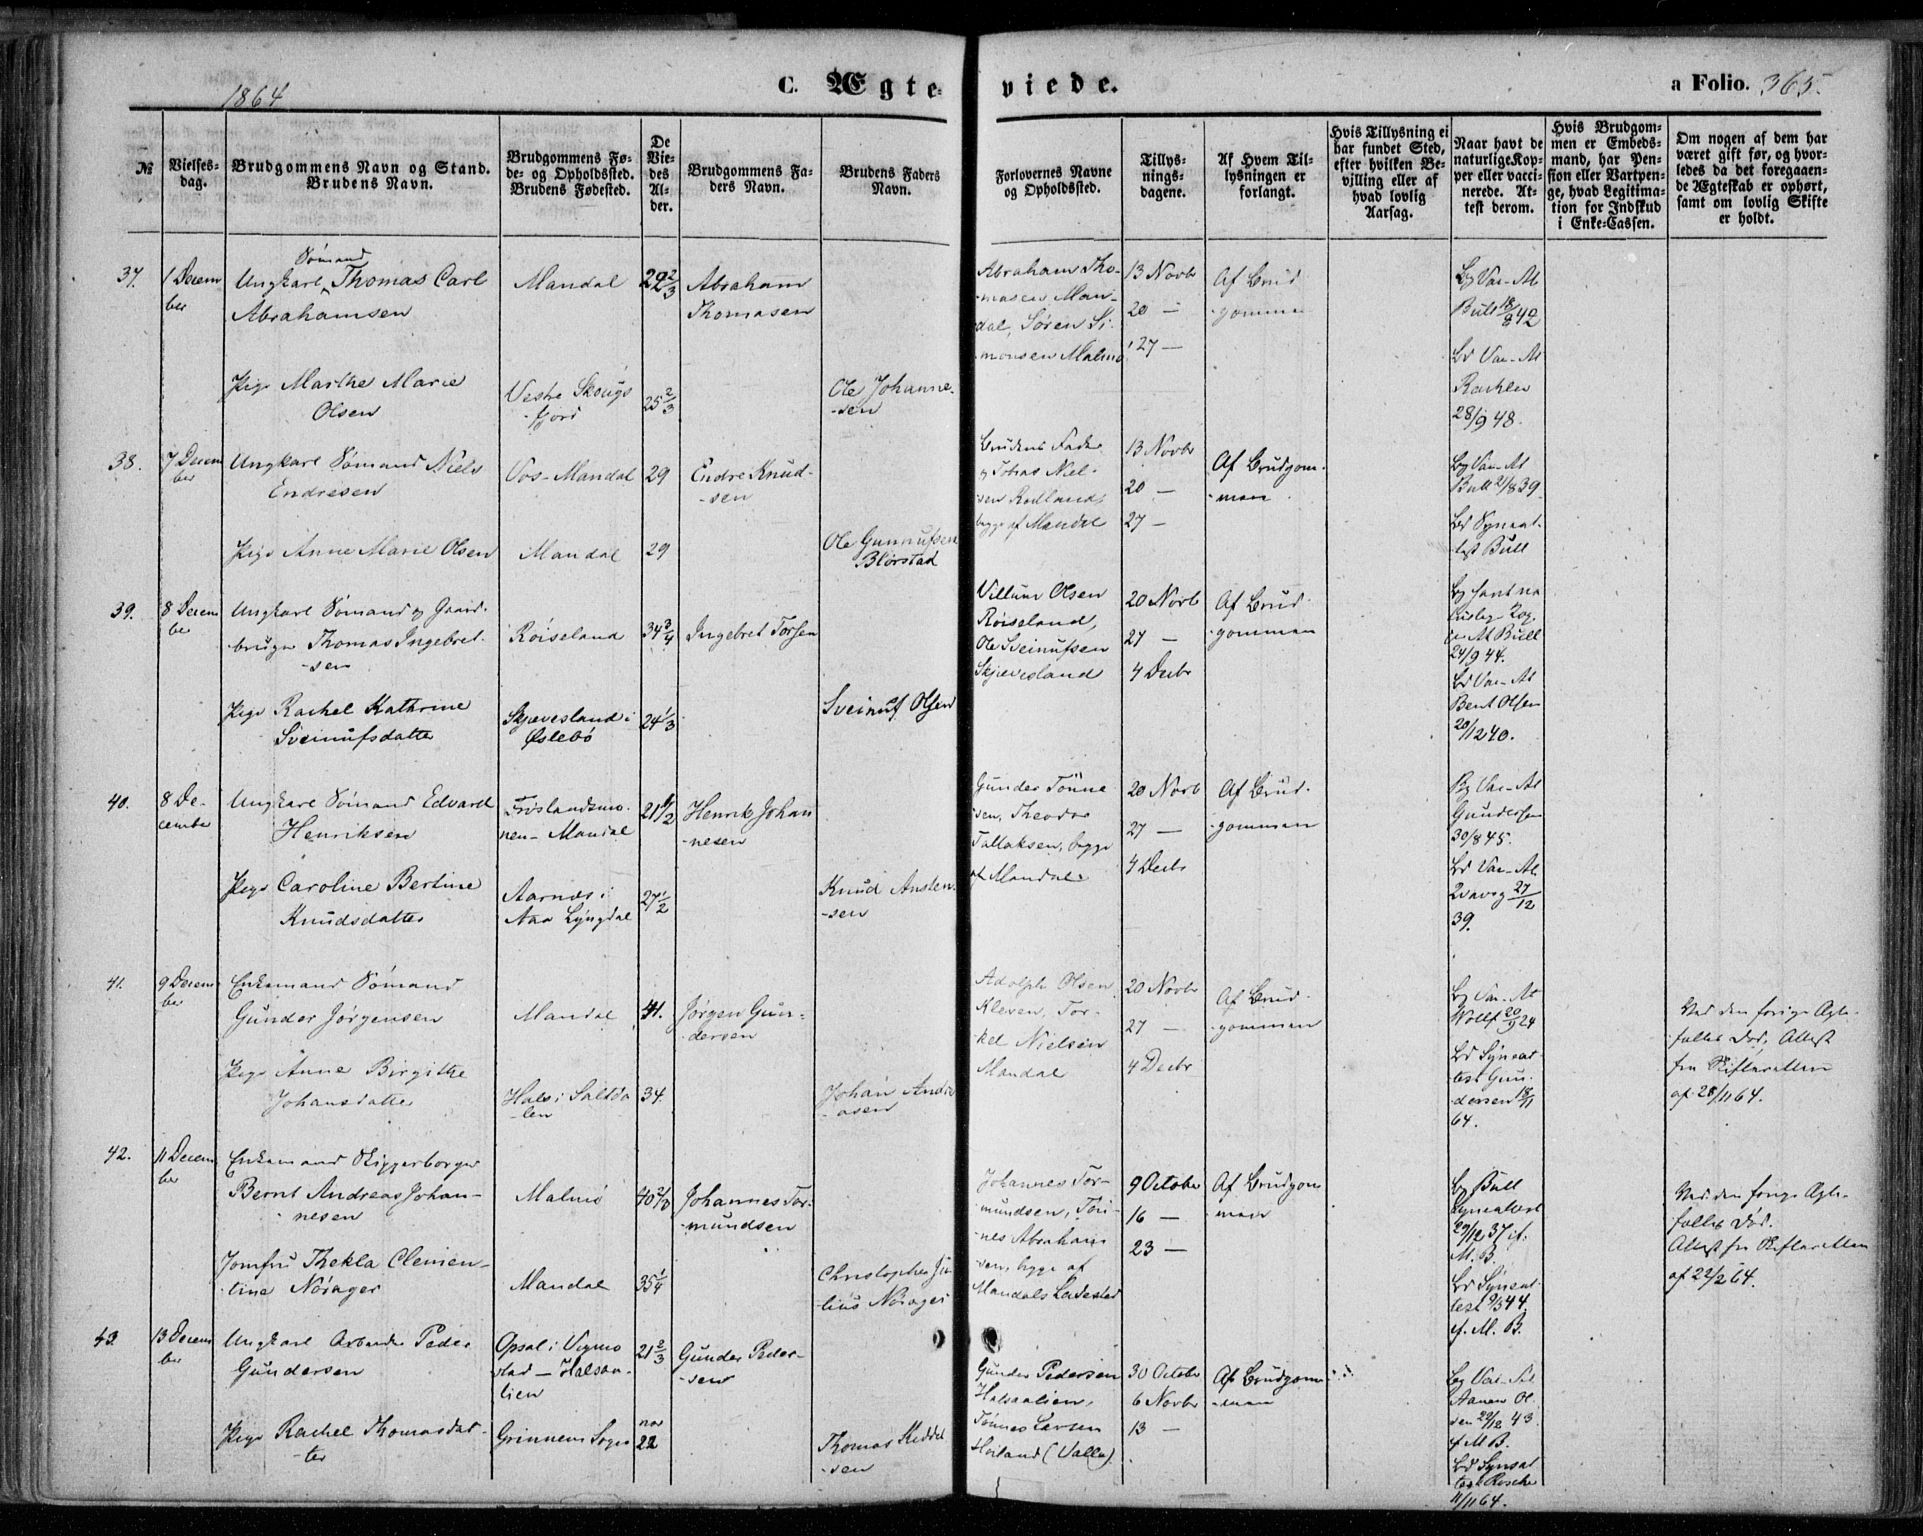 1864
C. Ægteviede.
a Folio. 365.
№
Vielses-
dag.
Brudgommens Navn og Stand.
Brudens Navn.
Brudgommens Fø-
de- og Opholdssted.
Brudens Fødested.
De
Vie-
des
Al-
der.
Brudgommens Fa-
ders Navn.
Brudens Faders
Navn.
Forlovernes Navne
og Opholdssted.
Tillys-
nings-
dagene.
Af Hvem Til-
lysningen er
forlangt.
Hvis Tillysning ei
har fundet Sted,
efter hvilken Be-
villing eller af
hvad lovlig
Aarsag.
Naar havt de
naturlige Kop-
per eller vacci-
nerede. At-
test derom.
Hvis Brudgom-
men er Embeds-
mand, har Pen-
sion eller Vartpen-
ge, hvad Legitima-
tion for Indskud
i Enke-Cassen.
Om nogen af dem har
været gift før, og hvor-
ledes da det foregaaen-
de Ægteskab er ophørt,
samt om lovlig Skifte
er holdt.
37.
1 Decem
ber
Sømand
Ungkarl Thomas Carl
Abrahamsen
Mandal
29 2/3
Abraham
Thomasen
Abraham Tho-
masen Man-
dal, Søren Si-
monsen Malmø
13 Novbr
20 —
27 —
Af Brud
gommen
Bg Vac. At
Bull 18/8 42
Bd Vac. At
28/9 48.
Pige Marthe Marie
Olsen
Vestre Skougs
fjord
25 2/3
Ole Johanne-
sen
38.
7 Decem
ber
Ungkarl Sømand Niels
Endresen
Vos - Mandal
29
Endre Knud-
sen
Brudens Fader
og Tobias Niel-
sen
begge af Mandal
13 Novbr
20 —
27 —
Af Brudgom-
men
Bg Vac. At
Bull 2/8 39
Bd Synsat-
test Bull
Pige Anne Marie Olsen
Mandal
29
Ole Gunnufsen
Blørstad
39.
8 Decem
ber
Ungkarl Sømand og Gaard-
bruger Thomas Ingebret-
sen
Røiseland
34 3/4
Ingebret Torsen
Villum Olsen
Røiseland,
Ole Sveinufsen
Skjævesland
20 Novb
27 —
4 Decbr
Af Brud-
gommen
Bg havt na
turlige Kop
per At Bull
24/9 44.
Bd Vac. At
Bent Olsen
20/12 40.
Pige Rachel Kathrine
Sveinufsdatter
Skjævesland i
Øslebø
24 1/3
Sveinuf Olsen
40.
8 De-
cember
Ungkarl Sømand Edvard
Henriksen
Frøslandsmo-
nen - Mandal
21 1/2
Henrik Johan
nesen
Gunder Tønne
sen, Theodor
Tallaksen, begge
af Mandal.
20 Novb
27 —
4 Decbr
Af Brud-
gommen
Bg Vac. At
Gundersen
30/8 45.
Bd Vac. At
27/12
39.
Pige Caroline Bertine
Knudsdatter
Aarnæs i
Aaa Lyngdal
27 1/2
Knud Ansten-
sen
41.
9 Decem
ber
Enkemand Sømand
Gunder Jørgensen
Mandal
41.
Jørgen Gun-
dersen
Adolph Olsen
Kleven, Tor-
kel Nielsen
Mandal
20 Novbr
27 —
4 Decbr
Af Brud-
gommen
Bg Vac. At
Wolff 20/9 24
Bd Synsat-
test Gun-
dersen 18/11
64.
Ved den forige Ægte-
fælles Død, Attest
fra Skifteretten
af 28/11 64.
Pige Anne Birgithe
Johansdatter
Hals i Saltda-
len
34.
Johan Andre
asen
42.
11 Decem
ber
Enkemand Skiggerborger
Bernt Andreas Johan-
nesen
Malmø
40 2/3
Johannes Tor-
mundsen
Johannes Tor-
mundsen, Tøn-
nes Abraham
sen, begge af
Mandals Ladested
9 October
16 —
23 —
Af Brudgom
men
Bg Bull
Synsattest
29/12 37 if.
M. B.
Bd Synsat-
test 9/3 44
if. M. B.
Ved den forige Ægte-
fælles Død.
Attest fra Skifteretten
af 22/2 64.
Jomfru Thekla Clemen-
tine Nørager
Mandal
35 1/4
Christopher Ju-
lius Nørager
43.
13 Decem
ber
Ungkarl Arbeider Peder
Gundersen
Opsal i Vigmo
stad — Halsaa-
lien
21 2/3
Gunder Peder-
sen
Gunder Pedersen
Halsaalien,
Tønnes Larsen
Høiland (Valle)
30 Octobr
6 Novbr
13 —
Af Brudgom
men
Bg Vac. At
Aanen Ol-
sen 29/12 43.
if. M. B.
Bd Synsat
test Rosche
11/11 64.
Pige Rachel Thomasdat-
ter
Grinnems Sogn
nær
22
Thomas Keddel
sen